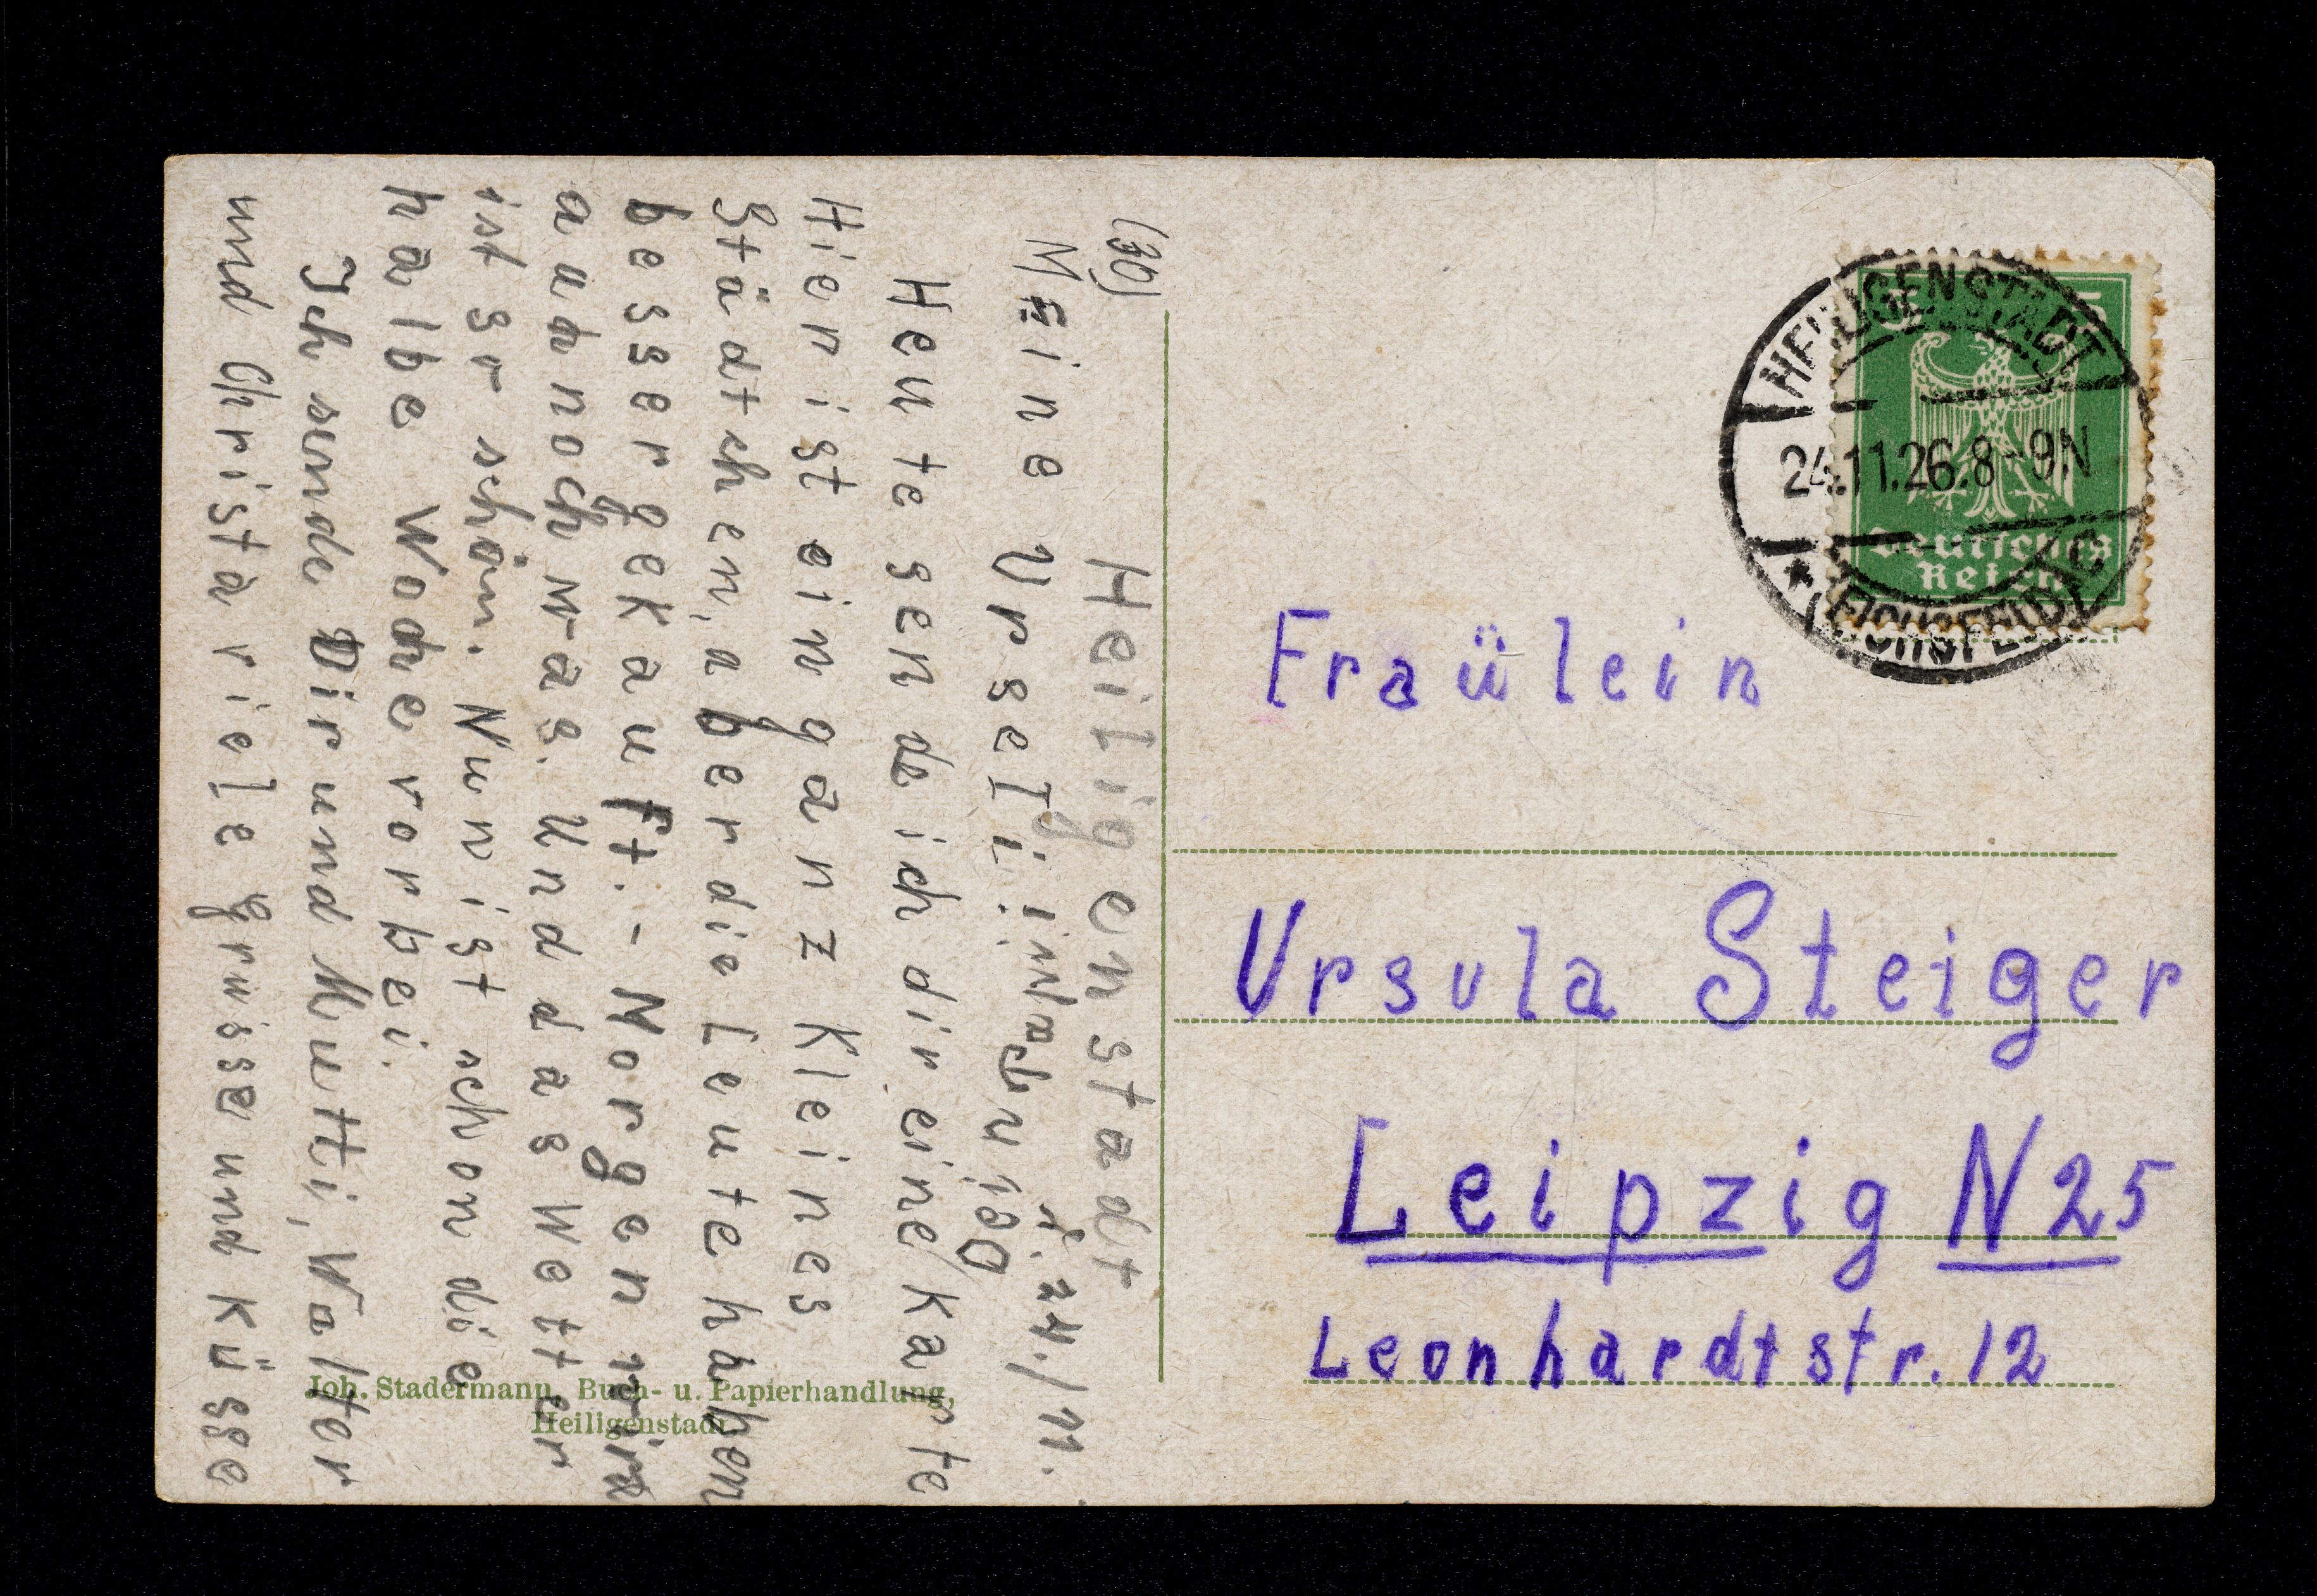 (30) Heiligenstadt
Meine Urseli! 24./11.
Heute sende ich dir eine Karte
Hier ist ein ganz Kleines
Städtchen, aber die Leute haben
besser gekauft. - Morgen wird
noch was. Und das Wetter
ist so schön. Nun ist schon die
halbe Woche vorbei.
Ich sende Dir und Mutti, Walter
und Christa viele Grüsse und Küsse
Joh. Stadermann, Buch- u. Papierhandlung,
Heiligenstadt.
HEILIGENSTADT
24.11.26.8-9N
* (EICHSFELD) C
5 5
Deutsches
Reich
Fraülein
Ursula Steiger
Leipzig N25
Leonhardtstr. 12